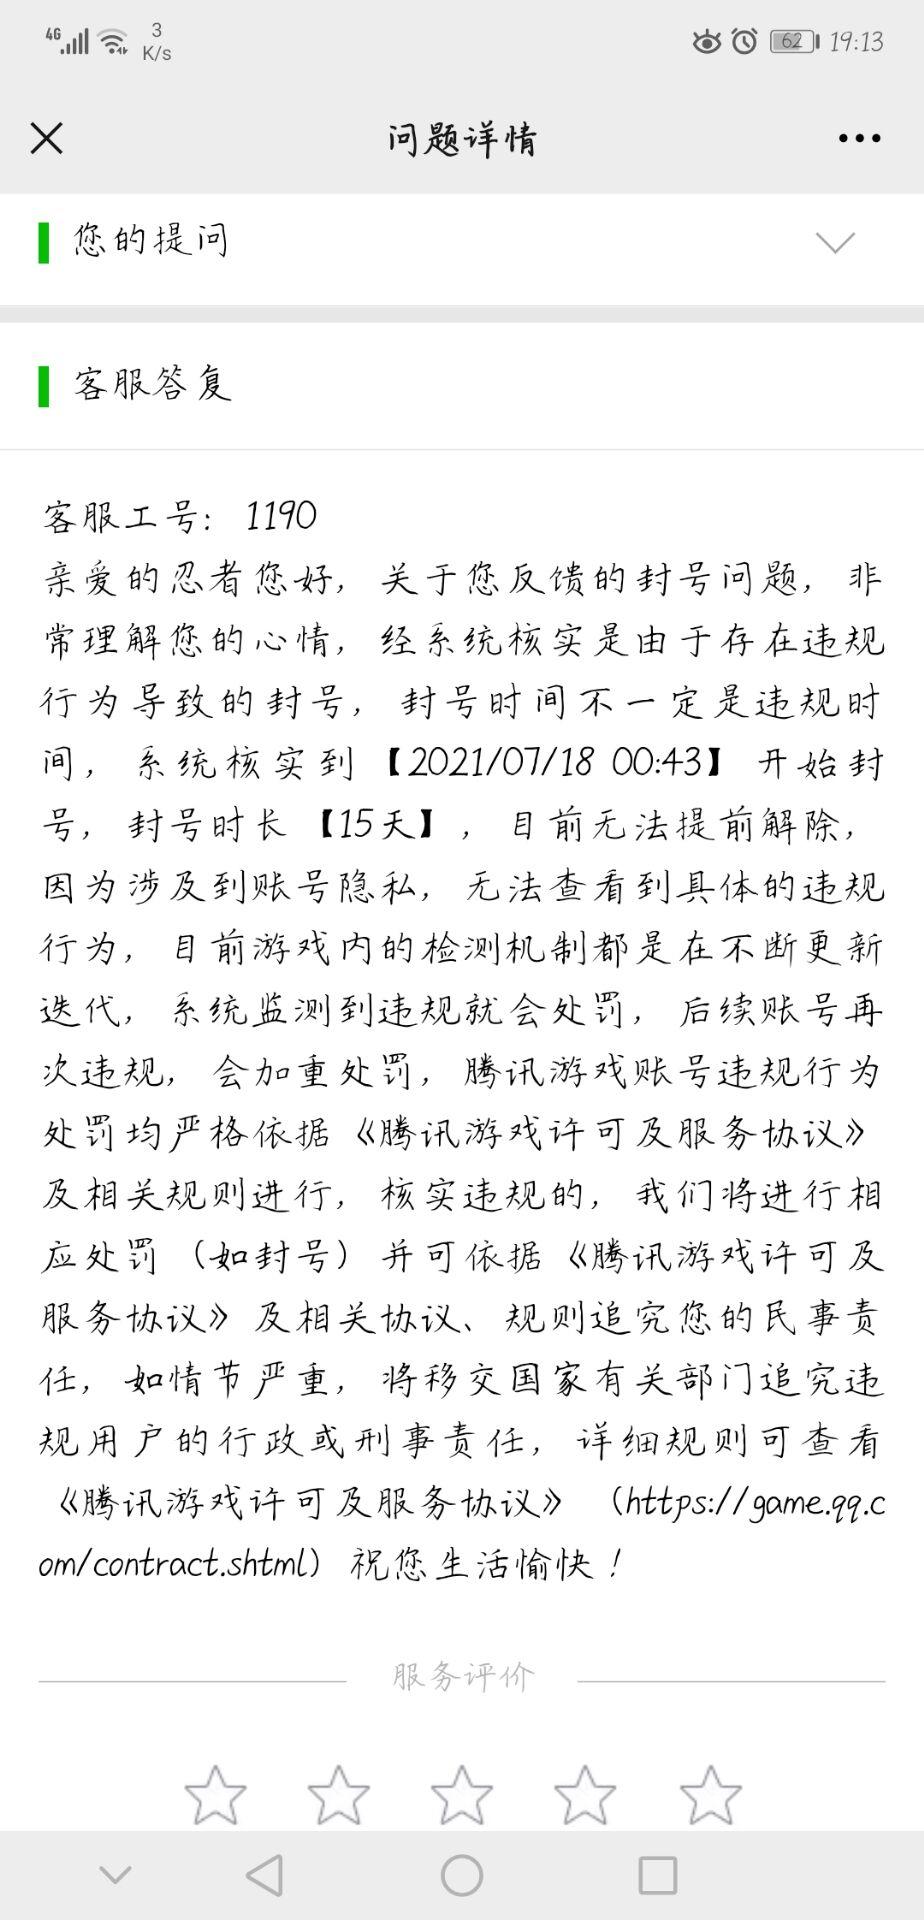 4G
3
K/s
62
19:13
问题详情
您的提问
客服答复
客服工号：1190
亲爱的忍者您好，关于您反馈的封号问题，非
常理解您的心情，经系统核实是由于存在违规
行为导致的封号，封号时间不一定是违规时
间，系统核实到【2021/07/18 00:43】开始封
号，封号时长【15天】，目前无法提前解除，
因为涉及到账号隐私，无法查看到具体的违规
行为，目前游戏内的检测机制都是在不断更新
迭代，系统监测到违规就会处罚，后续账号再
次违规，会加重处罚，腾讯游戏账号违规行为
处罚均严格依据《腾讯游戏许可及服务协议》
及相关规则进行，核实违规的，我们将进行相
应处罚（如封号）并可依据《腾讯游戏许可及
服务协议》及相关协议、规则追究您的民事责
任，如情节严重，将移交国家有关部门追究违
规用户的行政或刑事责任，详细规则可查看
《腾讯游戏许可及服务协议》（https://game.qq.c
om/contract.shtml）祝您生活愉快！
服务评价